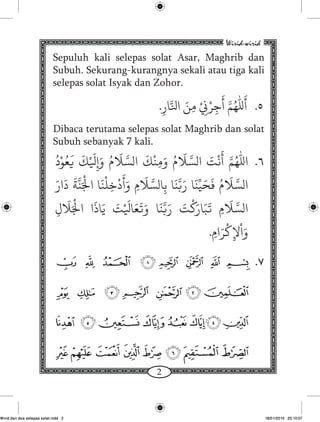 Wirid-wirid
Sepuluh kali selepas solat Asar, Maghrib dan
Subuh. Sekurang-kurangnya sekali atau tiga kali
selepas solat Isyak dan Zohor.
٥. أَللّٰهُمَّ أَجِرْنِيْ مِنَ النَّارِ.
Dibaca terutama selepas solat Maghrib dan solat
Subuh sebanyak 7 kali.
٦. اَللّٰهُمَّ أَنْتَ السَّلاَمُ وَمِنْكَ السَّلاَمُ وَإِلَيْكَ يَعُوْدُ
السَّلاَمُ فَحَيِّنَا رَبَّنَا بِالسَّلاَمِ وَأَدْخِلْنَا الْجَنَّةَ دَارَ
السَّلاَمِ تَبَارَكْتَ رَبَّنَا وَتَعَالَيْتَ يَاذَا الْجَلاَلِ
وَاْلإِكْرَامِ.
٧. بِسْمِ ٱللَّهِ ٱلرَّحْمَٰنِ ٱلرَّحِيمِ ١ ٱلْحَمْدُ لِلَّهِ رَبِّ
ٱلْعَٰلَمِينَ ٢ ٱلرَّحْمَٰنِ ٱلرَّحِيمِ ٣ مَٰلِكِ يَوْمِ
ٱلدِّينِ ٤ إِيَّاكَ نَعْبُدُ وَإِيَّاكَ نَسْتَعِينُ ٥ ٱهْدِنَا
ٱلصِّرَٰطَ ٱلْمُسْتَقِيمَ ٦ صِرَٰطَ ٱلَّذِينَ أَنْعَمْتَ عَلَيْهِمْ غَيْرِ
2
Wirid dan doa selepas solat.indd 2
16/01/2010 20:10:07